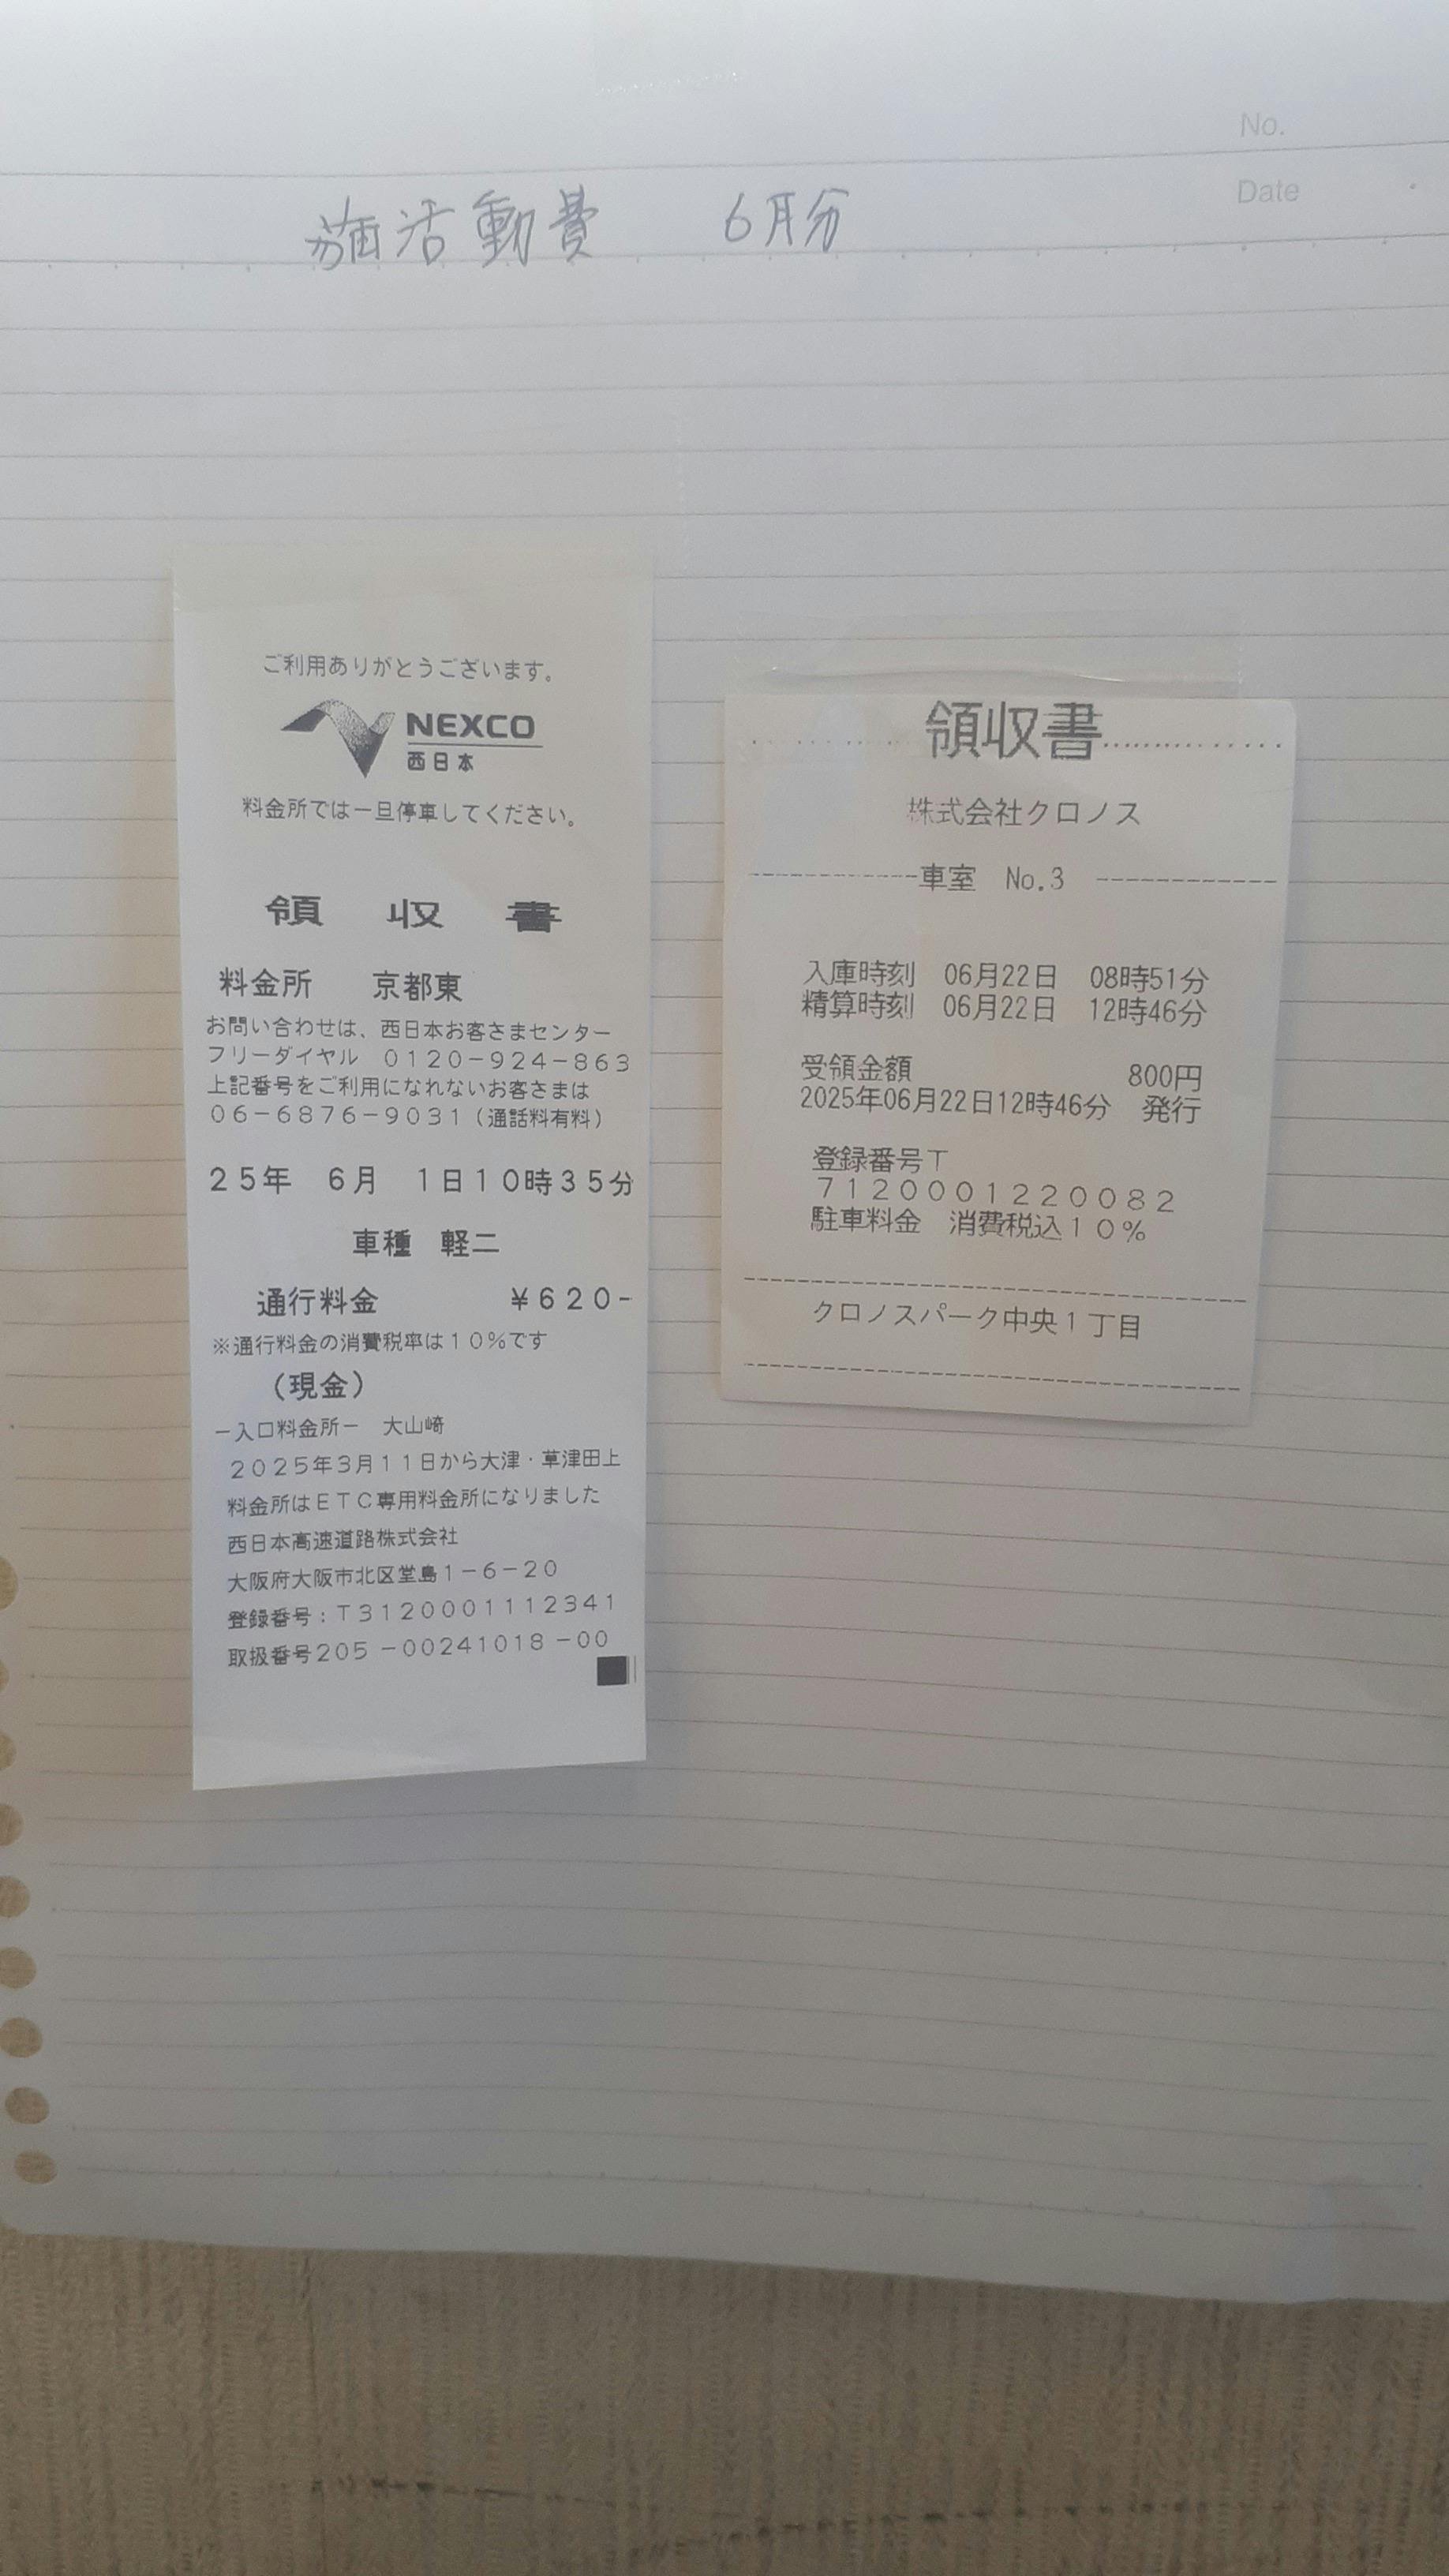 No.
Date
活動費 6月分
ご利用ありがとうございます。
NEXCO
西日本
料金所では一旦停車してください。
領 収 書
料金所 京都東
お問い合わせは、西日本お客さまセンター
フリーダイヤル 0120-924-863
上記番号をご利用になれないお客さまは
06-6876-9031(通話料有料)
25年 6月 1日10時35分
車種 軽二
通行料金 ¥620-
※通行料金の消費税率は10%です
(現金)
-入口料金所- 大山崎
2025年3月11日から大津・草津田上
料金所はETC専用料金所になりました
西日本高速道路株式会社
大阪府大阪市北区堂島1-6-20
登録番号:T3120001112341
取扱番号205-00241018-00
領収書
株式会社クロノス
車室 No.3
入庫時刻 06月22日 08時51分
精算時刻 06月22日 12時46分
受領金額 800円
2025年06月22日12時46分 発行
登録番号T
7120001220082
駐車料金 消費税込10%
クロノスパーク中央1丁目